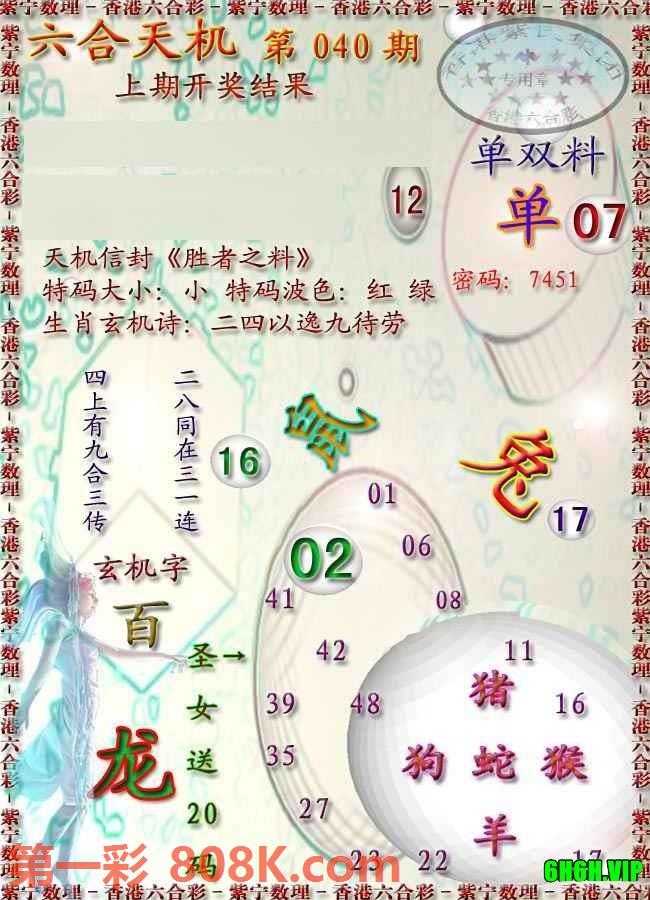 紫宁数理－香港六合彩－紫宁数理－香港六合彩－紫宁数理－香港六合彩
六合天机 第 040 期
上期开奖结果
专用章
香港六合彩
单双料
单 07
12
天机信封《胜者之料》
特码大小：小 特码波色：红 绿
密码：7451
生肖玄机诗：二四以逸九待劳
四上有九合三传
二八同在三一连
16
鼠
兔
17
01
02
06
41
08
玄机字
百
圣→
女
送
20
码
龙
42
11
39
48
猪
16
35
狗 蛇 猴
27
羊
23
22
17
第一彩 808K.com
6H6H.VIP
紫宁数理－香港六合彩－紫宁数理－香港六合彩－紫宁数理－香港六合彩